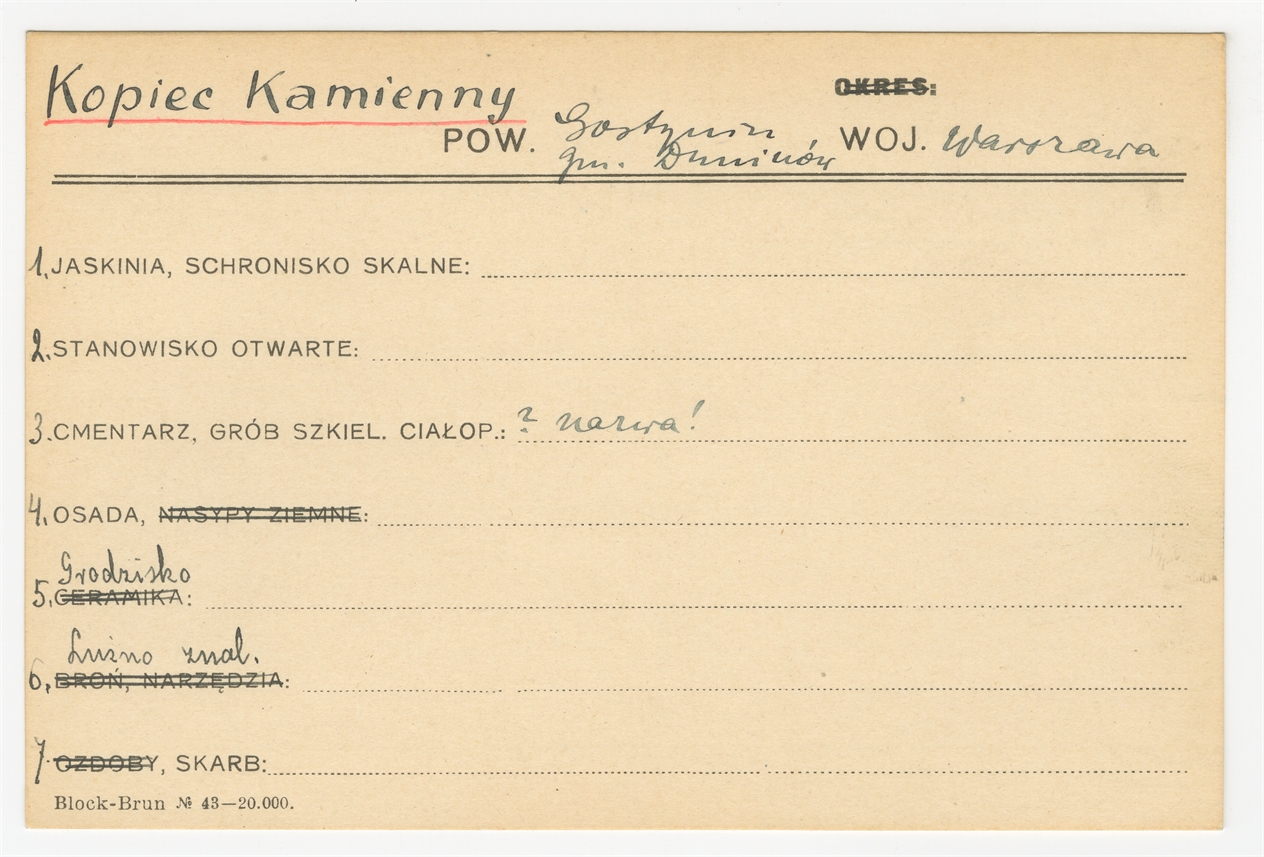 Kopiec Kamienny
OKRES:
POW. Gostynin WOJ. Warszawa
gm. Duninów
1. JASKINIA, SCHRONISKO SKALNE:
2. STANOWISKO OTWARTE:
3. CMENTARZ, GRÓB SZKIEL. CIAŁOP.: ? nazwa!
4. OSADA, NASYPY ZIEMNE:
Grodzisko
5. CERAMIKA:
Luźno znal.
6. BROŃ, NARZĘDZIA:
7. OZDOBY, SKARB:
Block-Brun № 43—20.000.